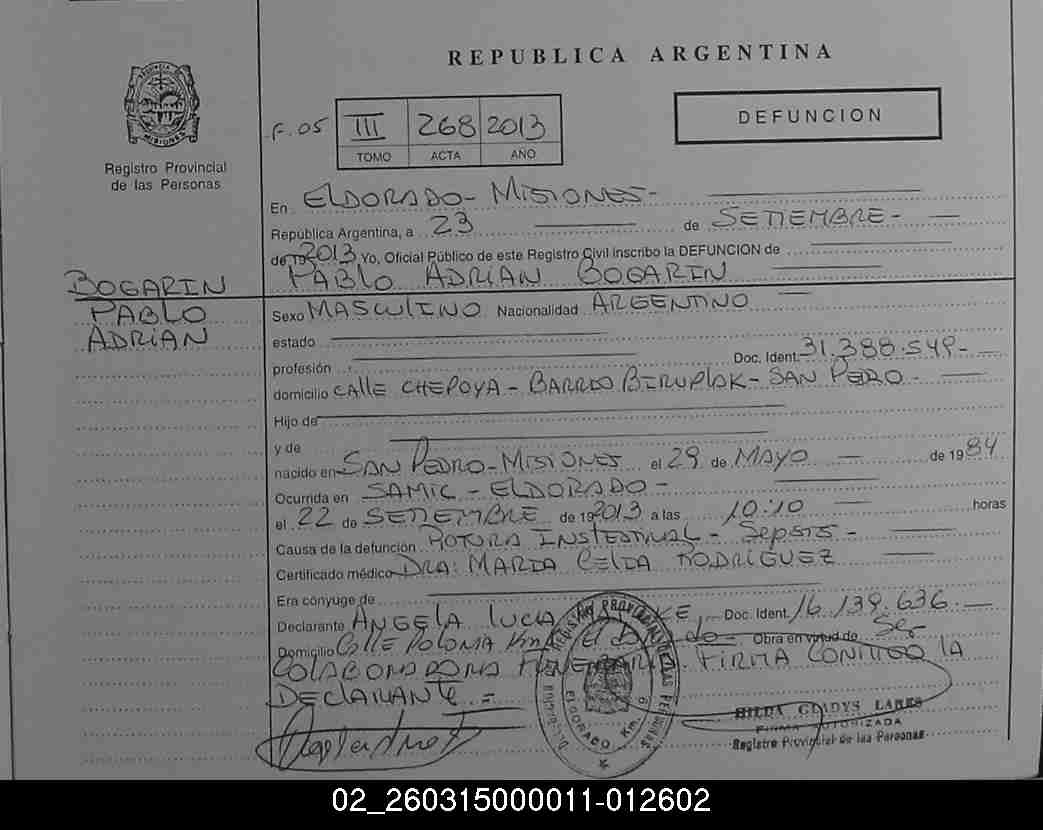 REPUBLICA ARGENTINA
PROVINCIA DE MISIONES
Registro Provincial
de las Personas
F. 05 III 268 2013
TOMO ACTA AÑO
DEFUNCION
En ELDORADO - MISIONES -
República Argentina, a 23 de SETIEMBRE -
de 19 2013 Yo, Oficial Público de este Registro Civil inscribo la DEFUNCION de
PABLO ADRIAN BOGARIN
BOGARIN
PABLO
ADRIAN
Sexo MASCULINO Nacionalidad ARGENTINO
estado
profesión Doc. Ident. 31.388.549 -
domicilio CALLE CHEPOYA - BARRIO - SAN PEDRO -
Hijo de
y de
nacido en SAN PEDRO - MISIONES el 29 de MAYO de 19 84
Ocurrida en SAMIC - ELDORADO -
el 22 de SETIEMBRE de 19 2013 a las 10:10 horas
Causa de la defunción ROTURA INSTESTINAL - SEPSIS -
Certificado médico DRA: MARIA CELIA RODRIGUEZ
Era cónyuge de
Declarante ANGELA LUCIA Doc. Ident. 16.139.636 -
Domicilio CALLE POLONIA Obra en virtud de Ser
COLABORADORA FUNERARIA. FIRMA CONMIGO LA
DECLARANTE. =
ELDORADO Km. 9
HILDA GLADYS LARES
FIRMA AUTORIZADA
Registro Provincial de las Personas
02_260315000011-012602